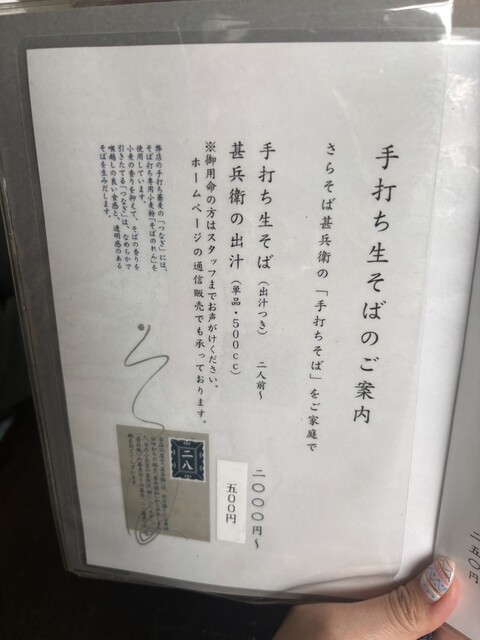 手打ち生そばのご案内
さらそば甚兵衛の「手打ちそば」をご家庭で
手打ち生そば（出汁つき） 二人前〜 二〇〇〇円〜
甚兵衛の出汁（単品・500cc） 五〇〇円
※御用命の方はスタッフまでお声がけください。
ホームページの通信販売でも承っております。
弊店の手打ち蕎麦の「つなぎ」には、
そば打ち専用小麦粉「そばのれん」を
使用しています。
小麦の香りを抑えて、そばの香りを
引きたてる「つなぎ」は、なめらかで
喉越しの良い食感と、透明感のある
そばを生みだします。
二八
二五〇円